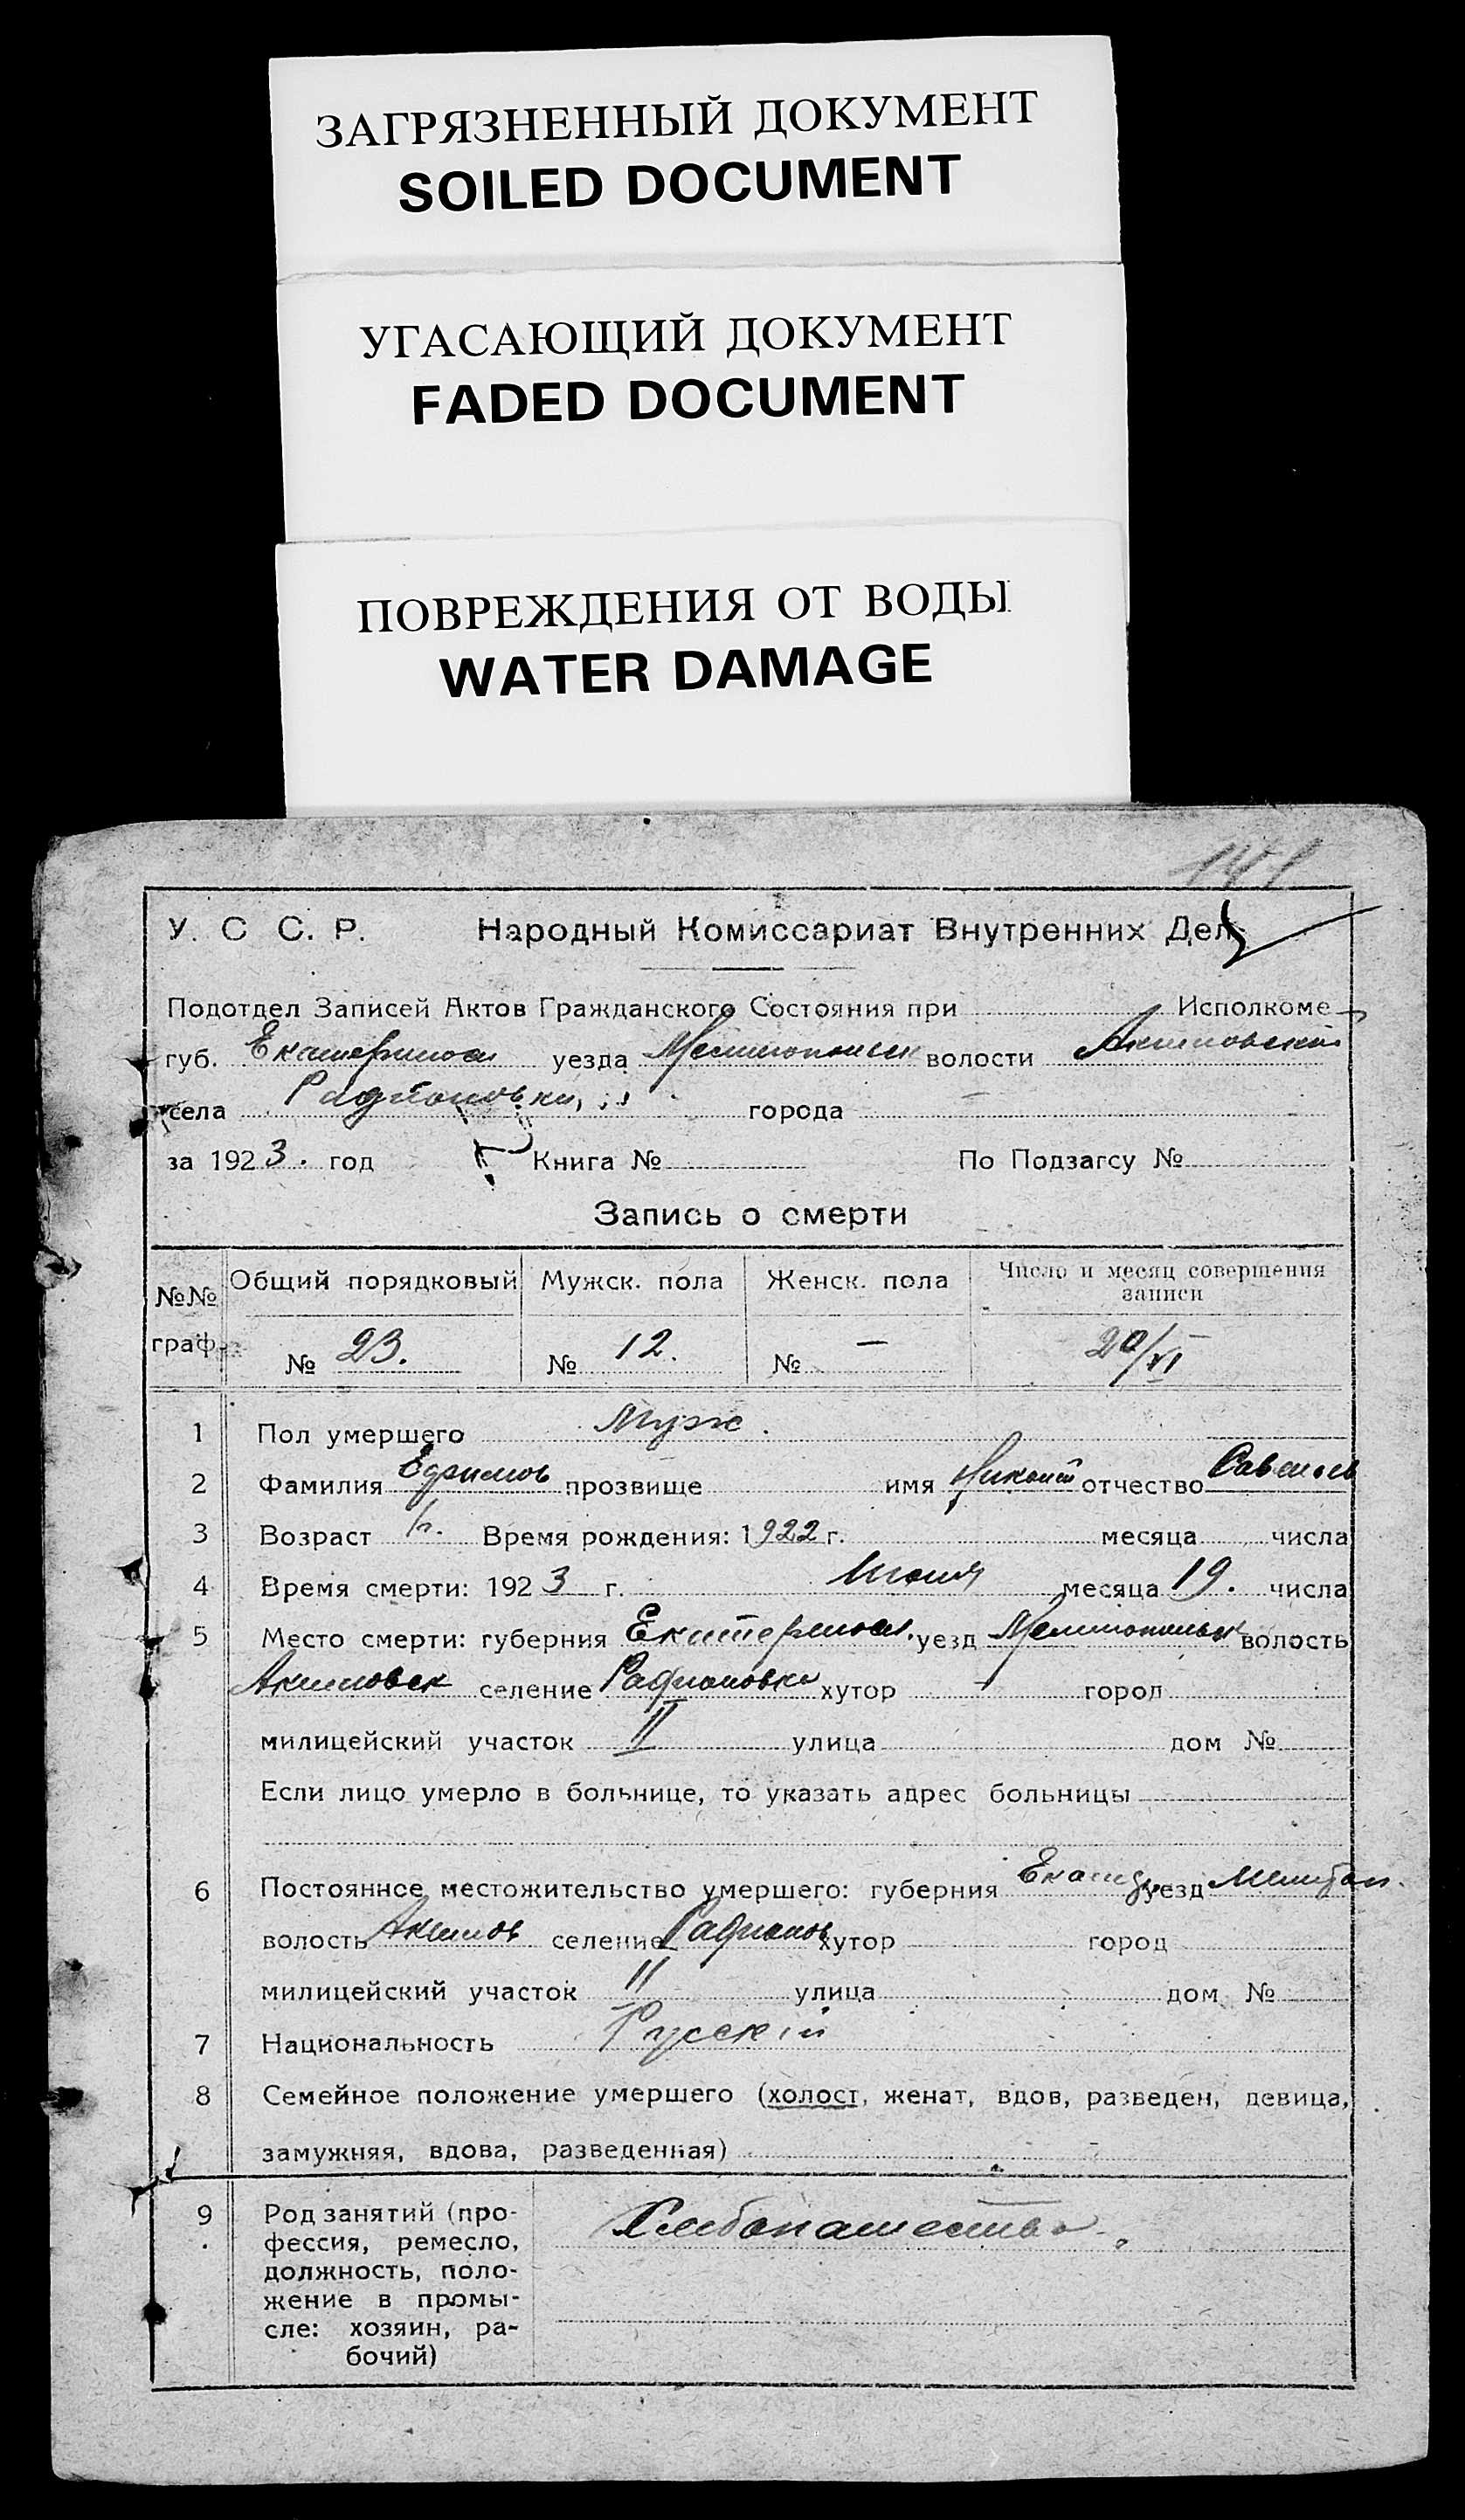 ЗАГРЯЗНЕННЫЙ ДОКУМЕНТ
SOILED DOCUMENT
УГАСАЮЩИЙ ДОКУМЕНТ
FADED DOCUMENT
ПОВРЕЖДЕНИЯ ОТ ВОДЫ
WATER DAMAGE
141
У. С С. Р. Народный Комиссариат Внутренних Дел
Подотдел Записей Актов Гражданского Состояния при Исполкоме
губ. Екатеринос уезда Мелитопольск волости Акимовской
села Радионовки, города —
за 1923. год Книга № По Подзагсу №
Запись о смерти
№№ граф. Общий порядковый Мужск. пола Женск. пола Число и месяц совершения записи
№ 23. № 12. № — 20/VI
1 Пол умершего Муж.
2 Фамилия Ефимов прозвище имя отчество Савельев
3 Возраст 1г. Время рождения: 1922 г. месяца числа
4 Время смерти: 1923 г. Июня месяца 19. числа
5 Место смерти: губерния Екатеринос. уезд Мелитопольск волость
Акимовск селение Радионовка хутор — город
милицейский участок II улица дом №
Если лицо умерло в больнице, то указать адрес больницы
6 Постоянное местожительство умершего: губерния Екатер. уезд Мелитоп.
волость Акимов селение Радионов хутор город
милицейский участок II улица дом №
7 Национальность Русскій
8 Семейное положение умершего (холост, женат, вдов, разведен, девица,
замужняя, вдова, разведенная)
9 Род занятий (про-
фессия, ремесло,
должность, поло-
жение в промы-
сле: хозяин, ра-
бочий)
Хлебопашество.